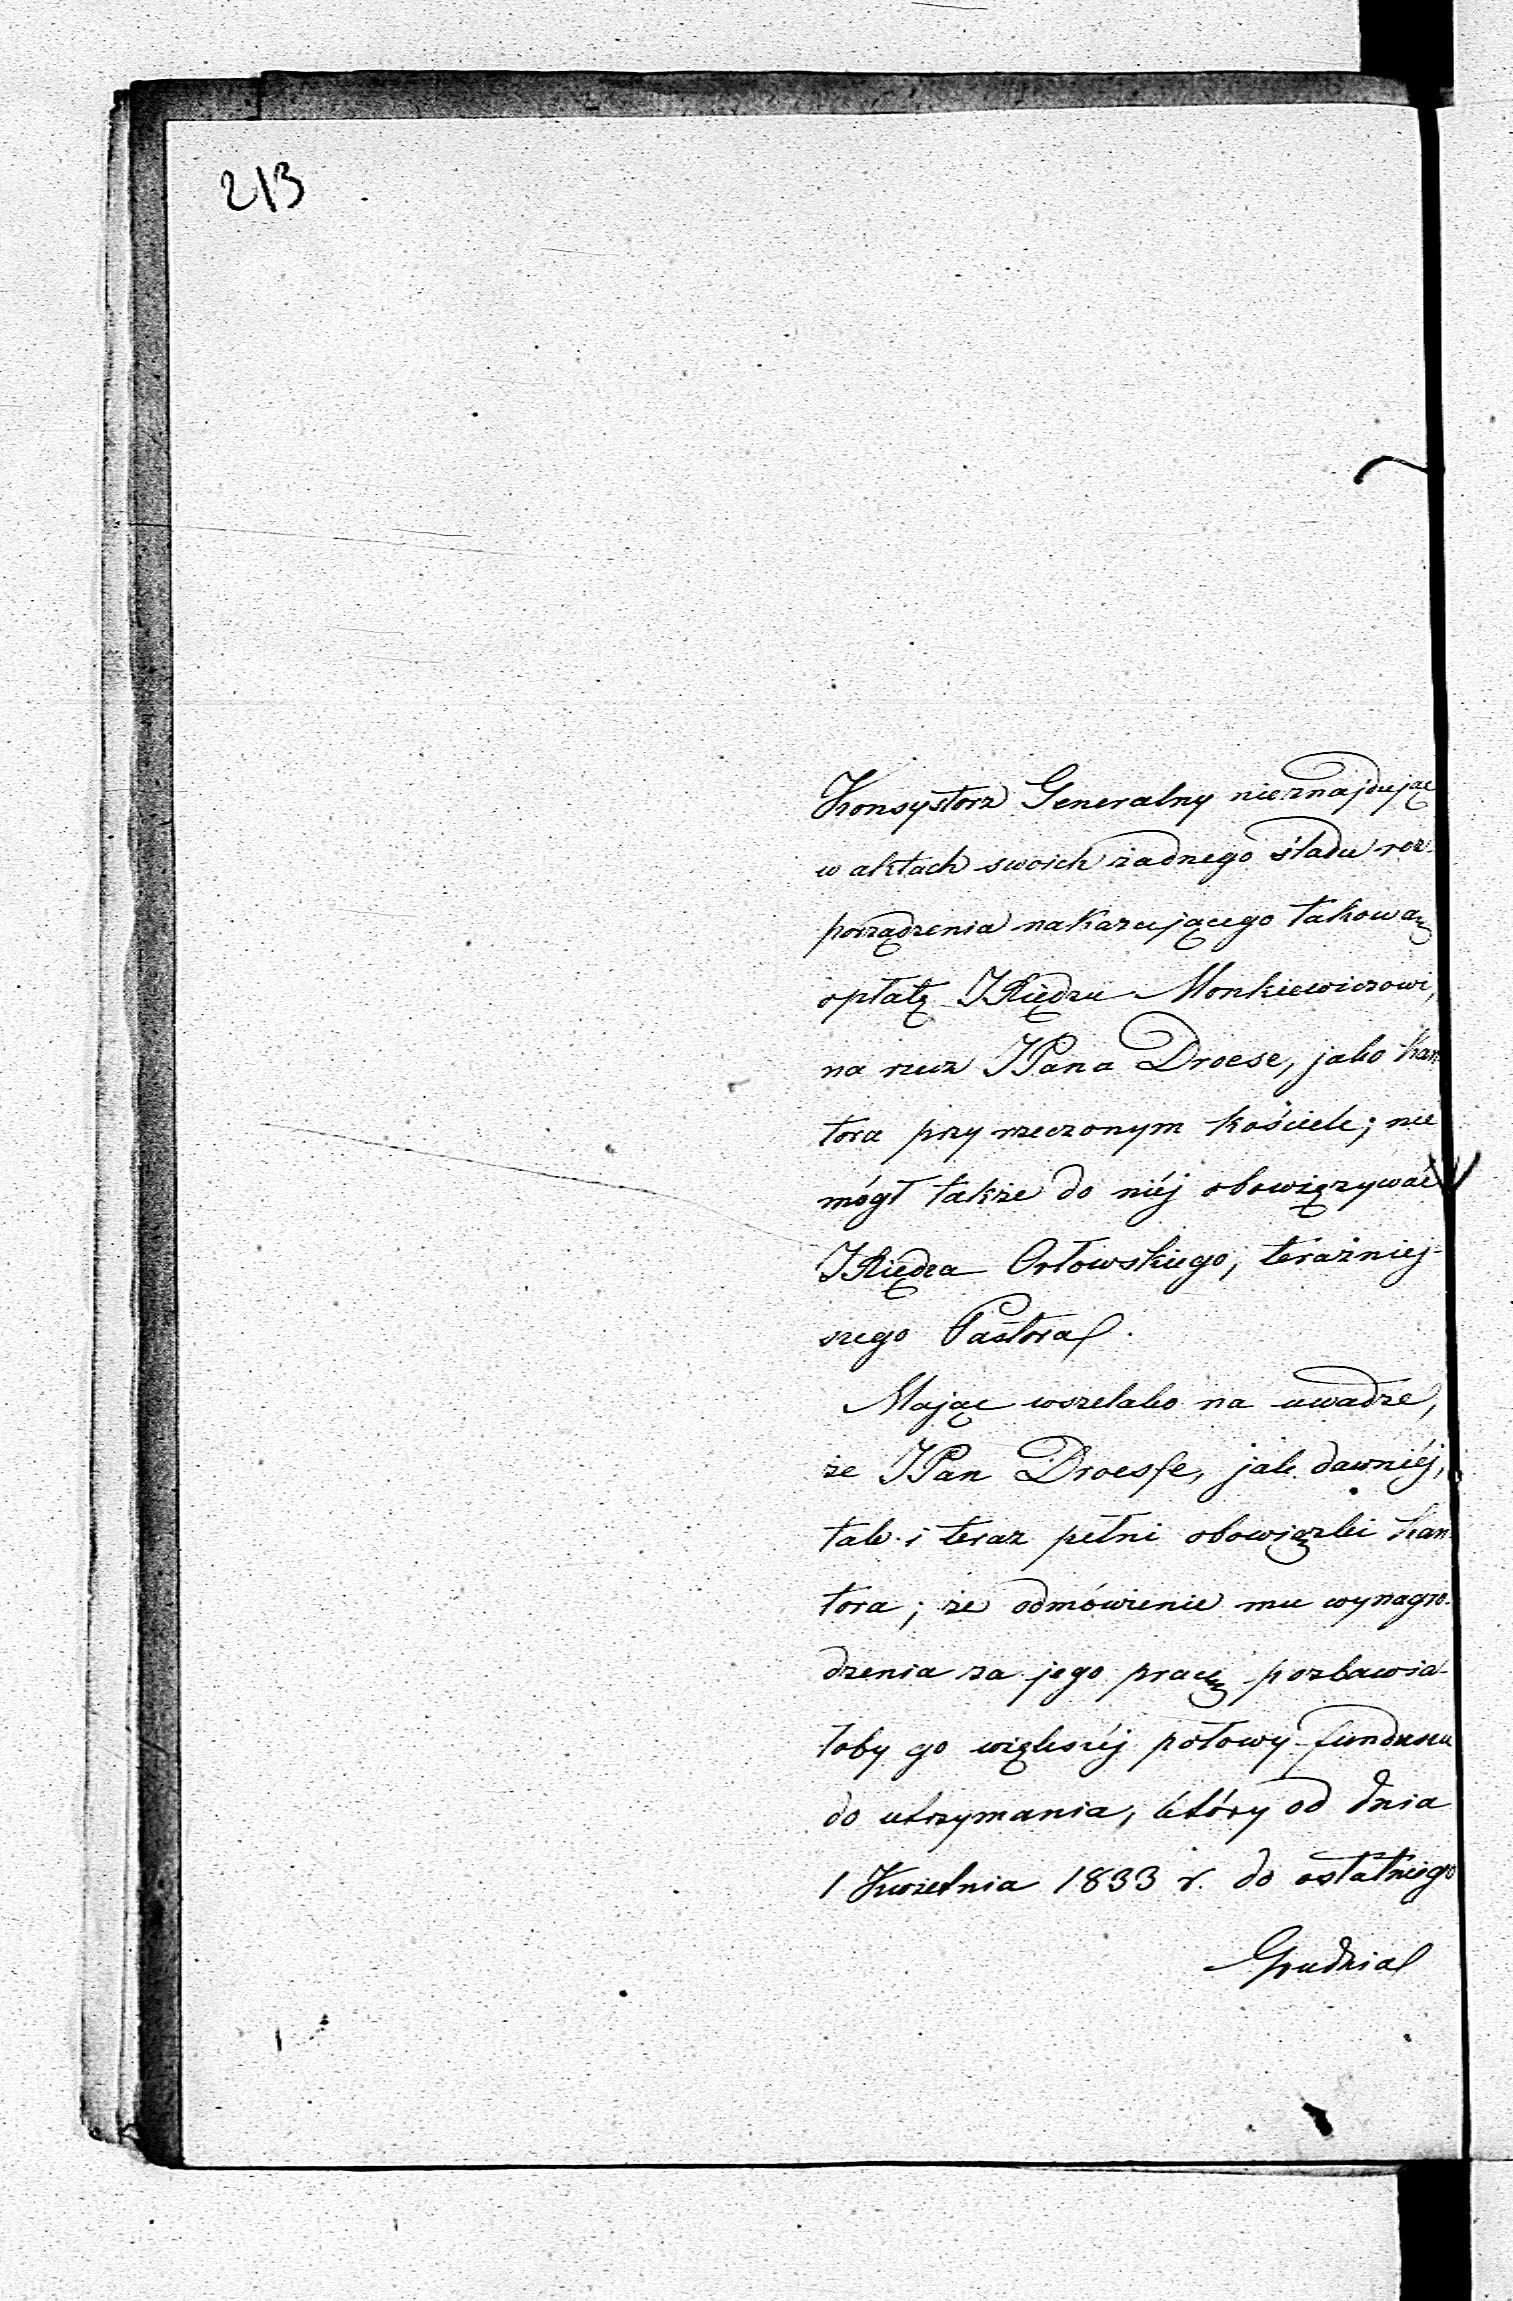 213
Konsystorz Generalny nieznajdując
w aktach swoich żadnego śladu roz-
porządzenia nakazującego takową
opłatę JXiędzu Monkiewiczowi,
na rzecz JPana Droese, jako Kan
tora przy rzeczonym kościele; nie
mógł także do niéj obowięzywać
JXiędza Orłowskiego, teraźniej-
szego Pastora.
Mając wszelako na uwadze,
że JPan Droesse, jak dawniéj,
tak i teraz pełni obowiązki Kan
tora; że odmówienie mu wynagro-
dzenia za jego pracę, pozbawia-
łoby go większéj połowy funduszu
do utrzymania, który od dnia
1 Kwietnia 1833 r. do ostatniego
Grudnia